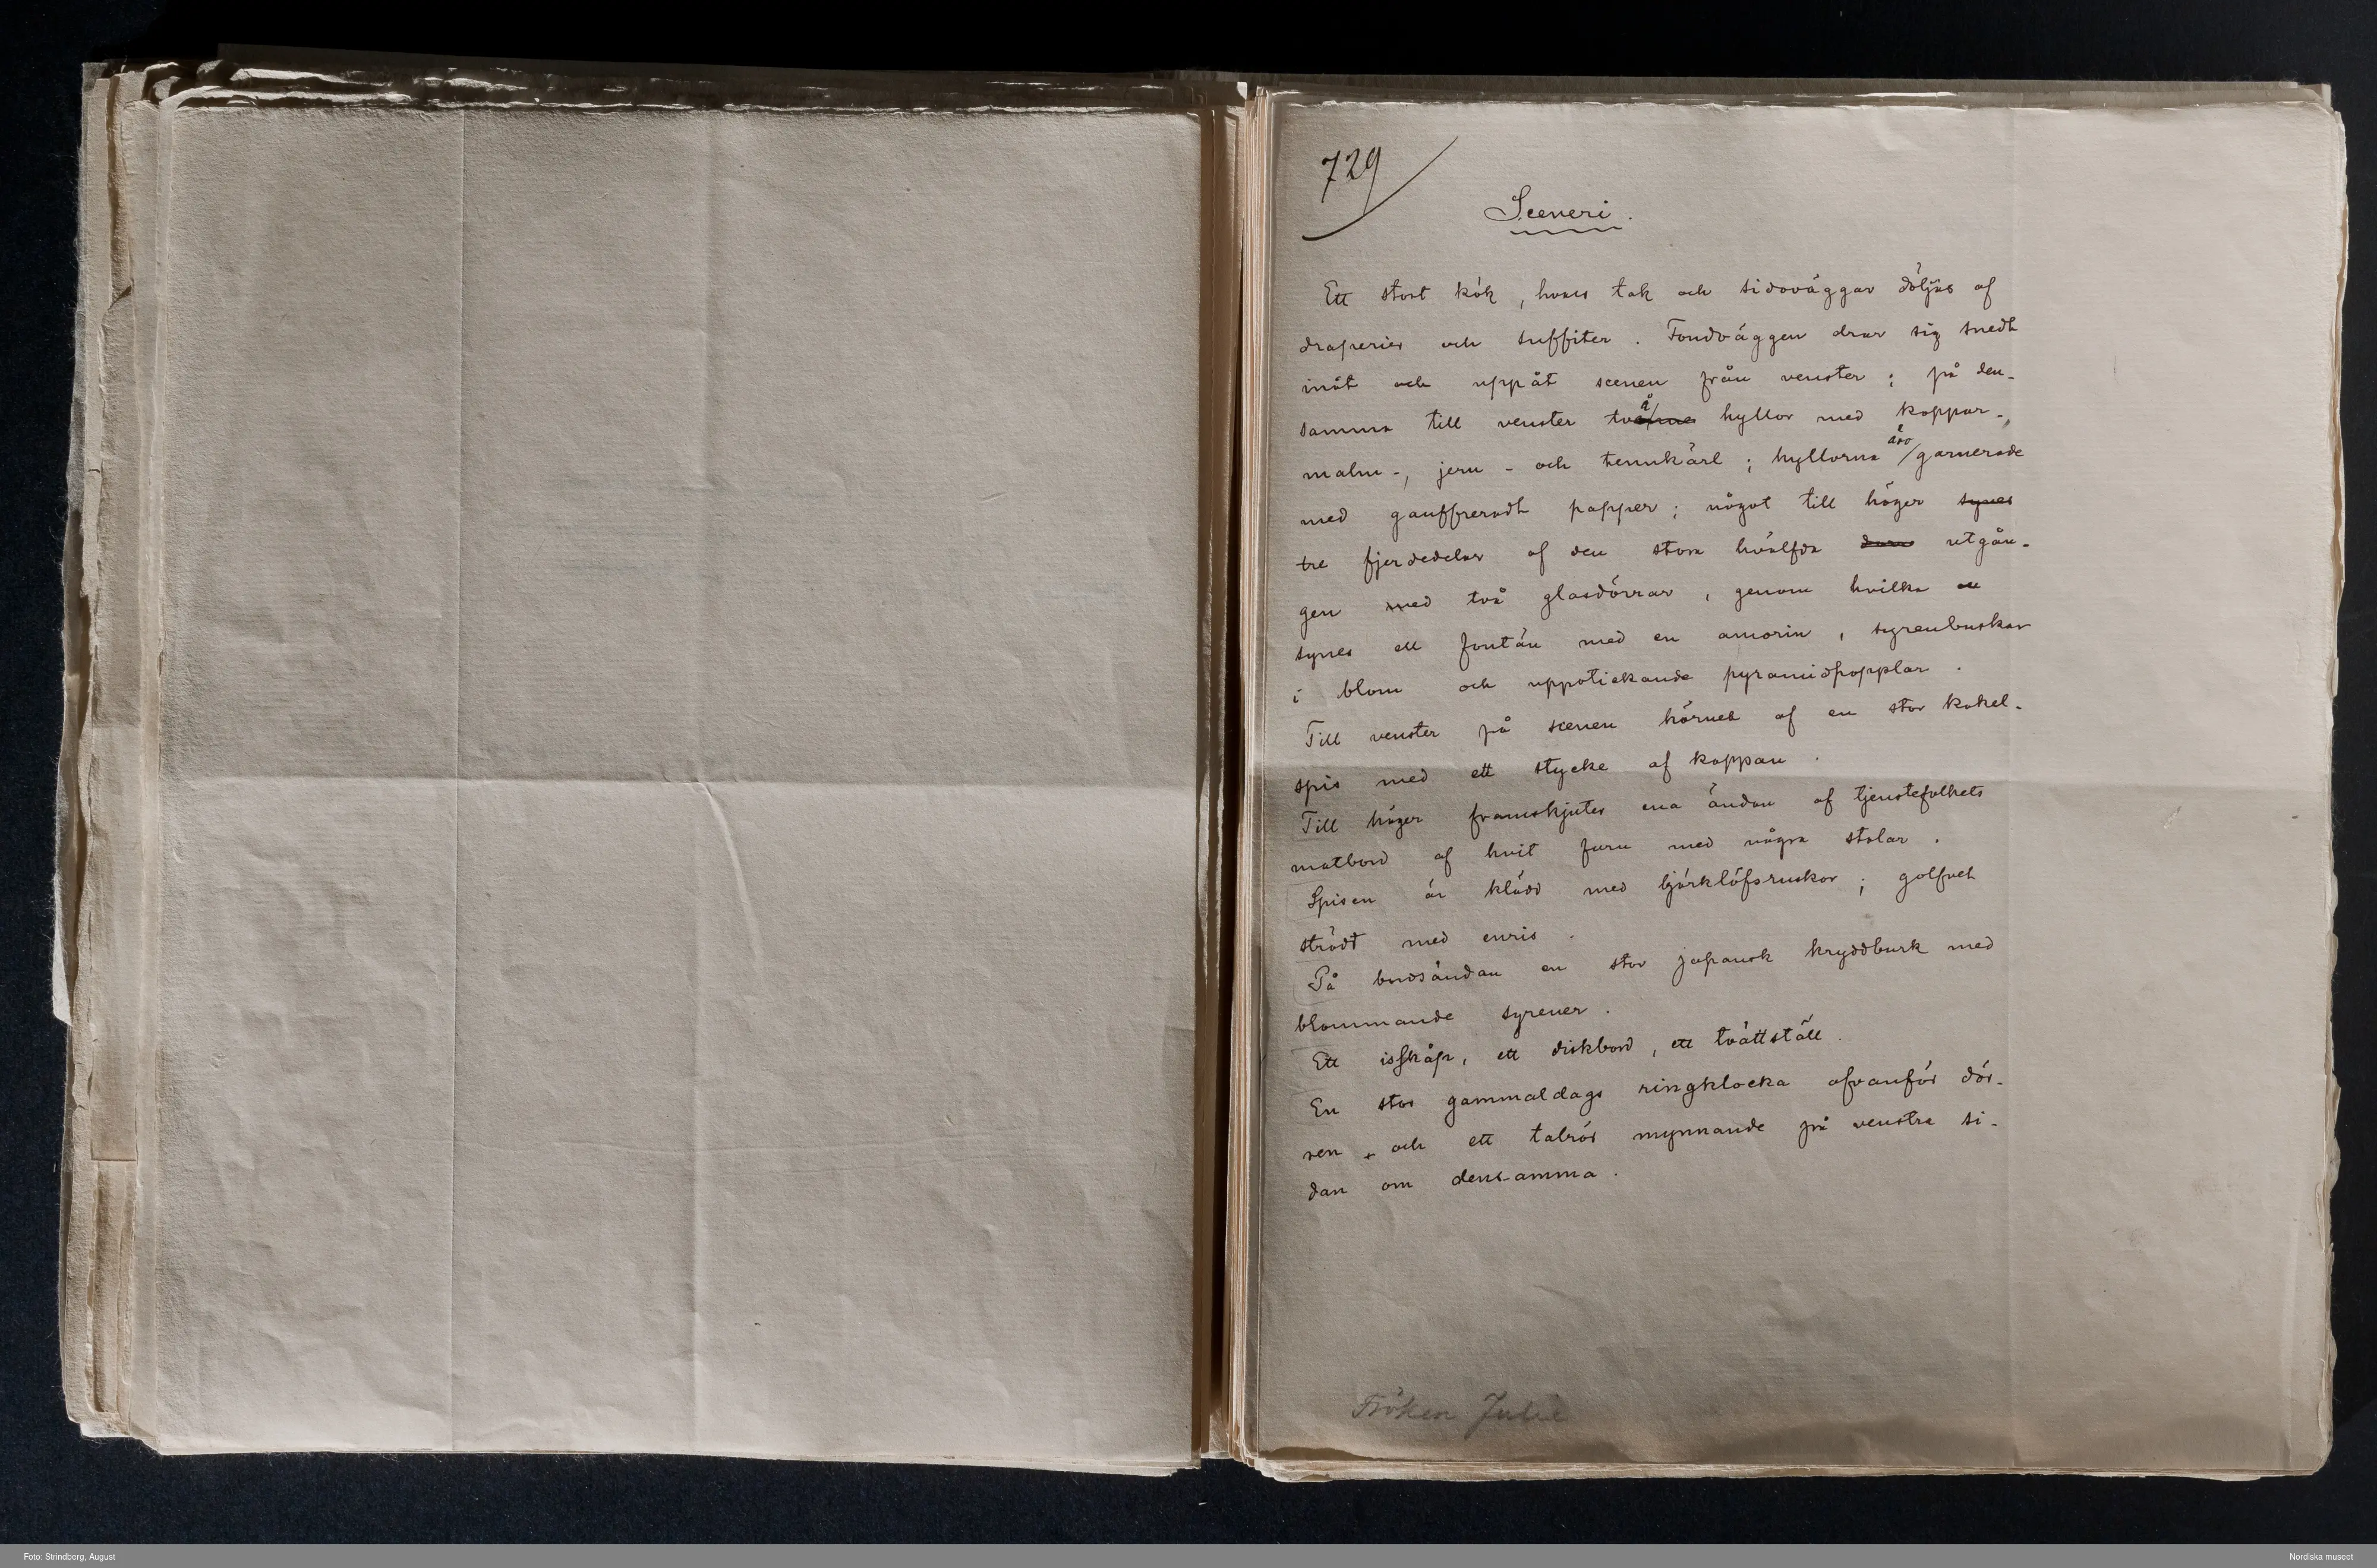 729
Sceneri.
Ett stort kök, hvars tak och sidoväggar döljas af
draperier och suffiter. Fondväggen drar sig snedt
inåt och uppåt scenen från venster; på den-
samma till venster två hyllor med koppar-,
malm-, jern- och tennkärl; hyllorna äro garnerade
med gauffreradt papper; något till höger synes
tre fjerdedelar af den stora hvälfda utgån-
gen med två glasdörrar, genom hvilka
synes en fontän med en amorin, syrenbuskar
i blom och uppstickande pyramidpopplar.
Till venster på scenen hörnet af en stor kakel-
spis med ett stycke af kappan.
Till höger framskjutes ena ändan af tjenstefolkets
matbord af hvit furu med några stolar.
Spisen är klädd med björklöfsruskor; golfvet
strödt med enris.
På bordsändan en stor japansk kryddburk med
blommande syrener.
Ett isskåp, ett diskbord, ett tvättställ.
En stor gammaldags ringklocka ofvanför dör-
ren och ett talrör mynnande på venstra si-
dan om densamma.
Fröken Julie
Foto: Strindberg, August
Nordiska museet